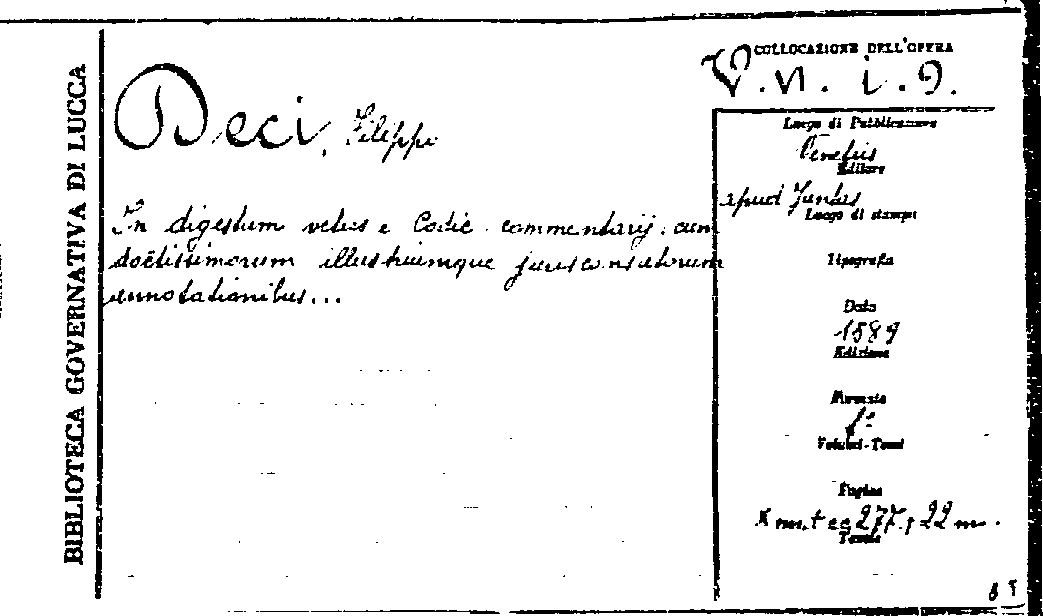 BIBLIOTECA GOVERNATIVA DI LUCCA
Deci, Filippi
In digestum vetus e Codic. commentarij. cum
doctissimorum illustriumque jurisconsultorum
annotationibus...
COLLOCAZIONE DELL'OPERA
V. VI. i. 9.
Luogo di Pubblicazione
Venetiis
Editore
apud Juntas
Luogo di stampa
Tipografia
Data
1589
Edizione
Formato
f.º
Volumi-Tomi
Pagine
277
22
Tavole